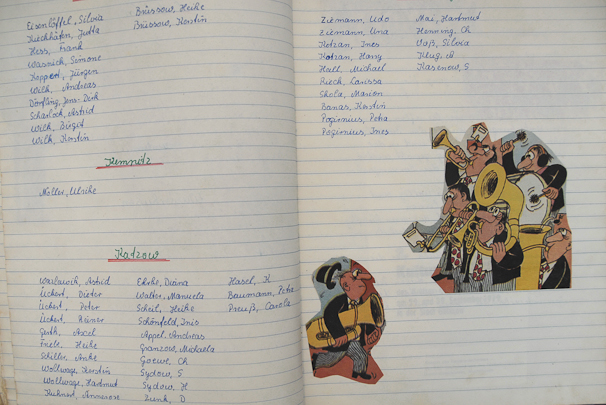 Eisenlöffel, Silvia
Kirchhäfer, Jutta
Hess, Frank
Wasnick, Simone
Koppert, Jürgen
Wilk, Andreas
Dörfling, Jens-Dirk
Scharlock, Astrid
Wilk, Birgit
Wilk, Kerstin
Brüssow, Heike
Brüssow, Kerstin
Kemnitz
Möller, Ulrike
Katzow
Warbruch, Astrid
Ückert, Dieter
Ückert, Peter
Ückert, Rainer
Guth, Axel
Friele, Heike
Schiller, Anke
Wollwage, Kerstin
Wollwage, Hartmut
Kuhnert, Annerose
Ehrke, Diana
Walter, Manuela
Scheil, Heike
Schönfeld, Ines
Appel, Andreas
Granzow, Michaela
Goewe, Ch
Sydow, S
Sydow, H
Zunk, D
Hasel, K
Baumann, Petra
Preuß, Carola
Ziemann, Udo
Ziemann, Una
Kotzan, Ines
Kotzan, Harry
Hall, Michael
Rieck, Carissa
Skola, Marion
Banas, Kerstin
Papirnius, Petra
Papirnius, Ines
Mai, Hartmut
Henning, Ch
Voß, Silvia
Klug, A
Kasenow, S